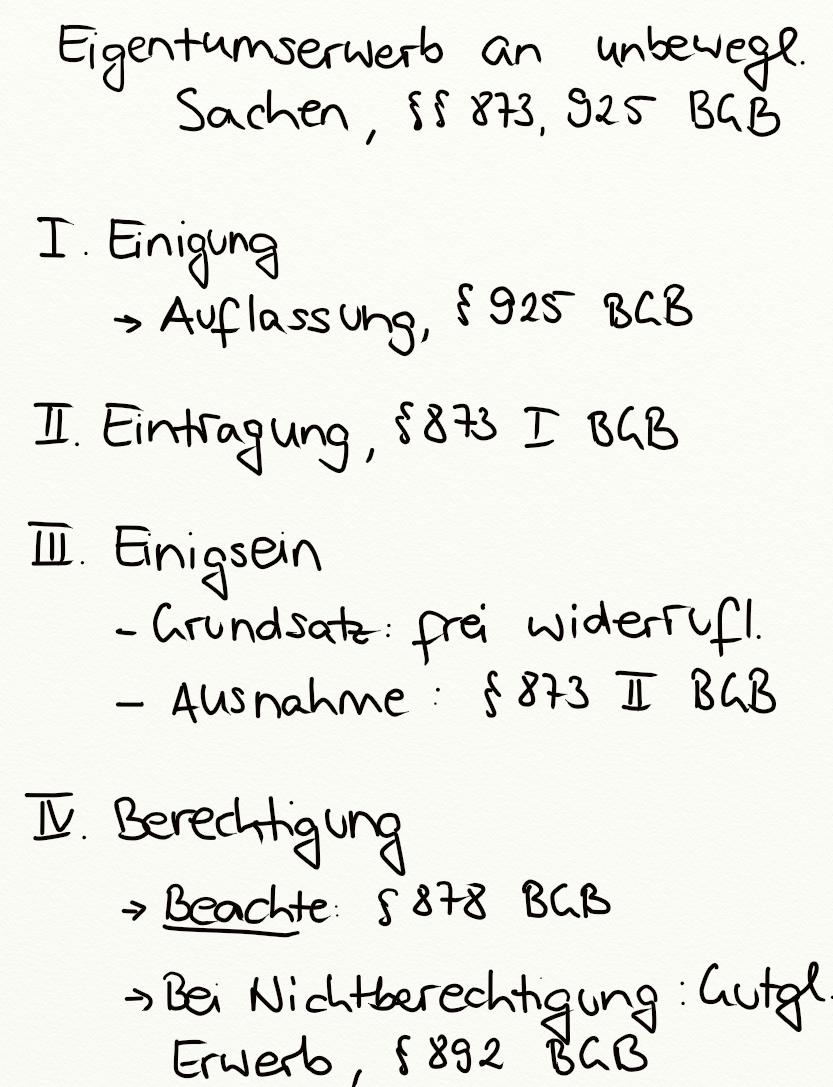 Eigentumserwerb an unbewegl.
Sachen, §§ 873, 925 BGB
I. Einigung
→ Auflassung, § 925 BGB
II. Eintragung, § 873 I BGB
III. Einigsein
- Grundsatz: frei widerrufl.
- Ausnahme: § 873 II BGB
IV. Berechtigung
→ Beachte: § 878 BGB
→ Bei Nichtberechtigung: Gutgl.
Erwerb, § 892 BGB